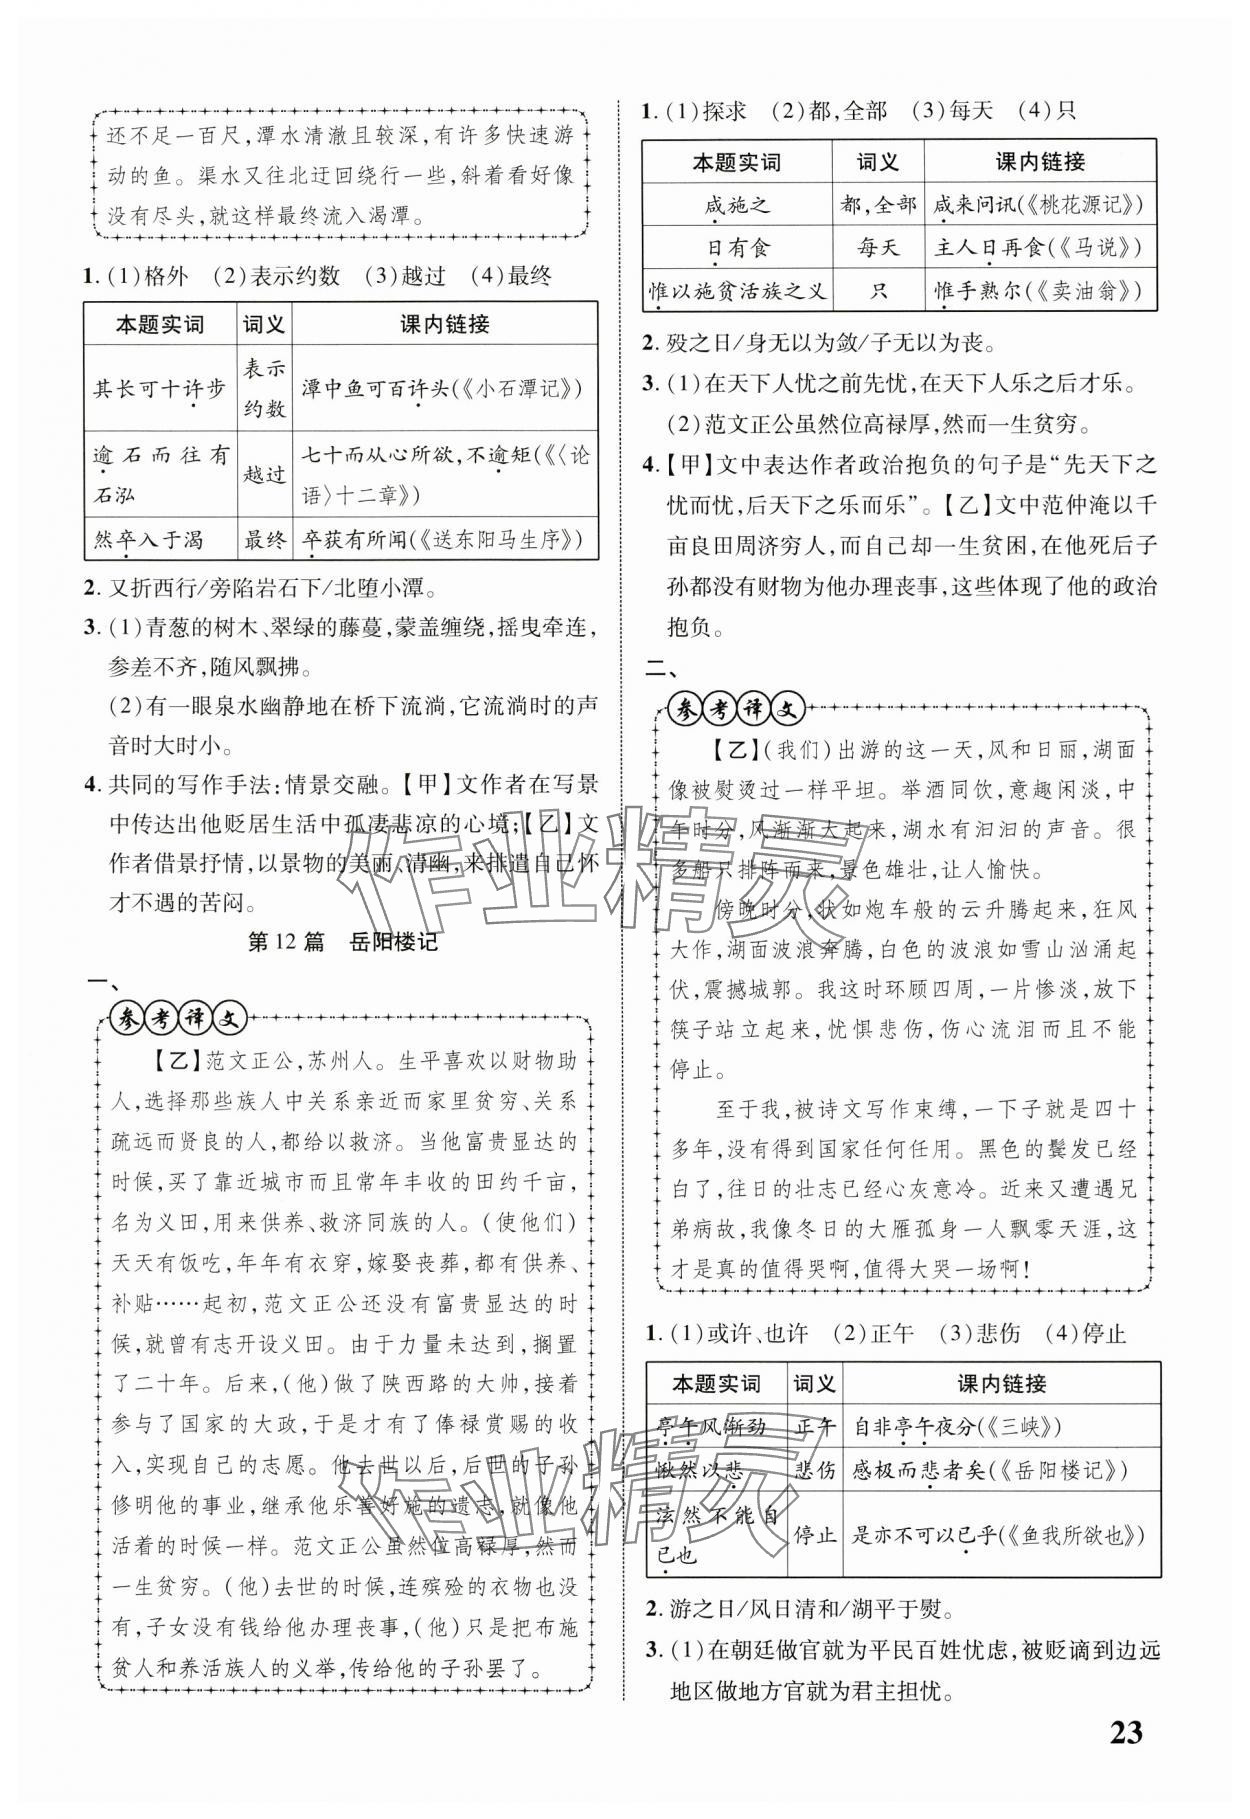 还不足一百尺，潭水清澈且较深，有许多快速游
动的鱼。渠水又往北迂回绕行一些，斜着看好像
没有尽头，就这样最终流入渴潭。
1.(1)格外　(2)表示约数　(3)越过　(4)最终
本题实词　词义　课内链接
其长可十许步　表示约数　潭中鱼可百许头(《小石潭记》)
逾石而往有石泓　越过　七十而从心所欲，不逾矩(《〈论语〉十二章》)
然卒入于渴　最终　卒获有所闻(《送东阳马生序》)
2. 又折西行/旁陷岩石下/北堕小潭。
3.(1)青葱的树木、翠绿的藤蔓，蒙盖缠绕，摇曳牵连，
参差不齐，随风飘拂。
(2)有一眼泉水幽静地在桥下流淌，它流淌时的声
音时大时小。
4. 共同的写作手法：情景交融。【甲】文作者在写景
中传达出他贬居生活中孤凄悲凉的心境；【乙】文
作者借景抒情，以景物的美丽、清幽，来排遣自己怀
才不遇的苦闷。
第12篇　岳阳楼记
一、
参考译文
【乙】范文正公，苏州人。生平喜欢以财物助
人，选择那些族人中关系亲近而家里贫穷、关系
疏远而贤良的人，都给以救济。当他富贵显达的
时候，买了靠近城市而且常年丰收的田约千亩，
名为义田，用来供养、救济同族的人。(使他们)
天天有饭吃，年年有衣穿，嫁娶丧葬，都有供养、
补贴……起初，范文正公还没有富贵显达的时
候，就曾有志开设义田。由于力量未达到，搁置
了二十年。后来，(他)做了陕西路的大帅，接着
参与了国家的大政，于是才有了俸禄赏赐的收
入，实现自己的志愿。他去世以后，后世的子孙
修明他的事业，继承他乐善好施的遗志，就像他
活着的时候一样。范文正公虽然位高禄厚，然而
一生贫穷。(他)去世的时候，连殡殓的衣物也没
有，子女没有钱给他办理丧事，(他)只是把布施
贫人和养活族人的义举，传给他的子孙罢了。
1.(1)探求　(2)都，全部　(3)每天　(4)只
本题实词　词义　课内链接
咸施之　都，全部　咸来问讯(《桃花源记》)
日有食　每天　主人日再食(《马说》)
惟以施贫活族之义　只　惟手熟尔(《卖油翁》)
2. 殁之日/身无以为敛/子无以为丧。
3.(1)在天下人忧之前先忧，在天下人乐之后才乐。
(2)范文正公虽然位高禄厚，然而一生贫穷。
4.【甲】文中表达作者政治抱负的句子是“先天下之
忧而忧，后天下之乐而乐”。【乙】文中范仲淹以千
亩良田周济穷人，而自己却一生贫困，在他死后子
孙都没有财物为他办理丧事，这些体现了他的政治
抱负。
二、
参考译文
【乙】(我们)出游的这一天，风和日丽，湖面
像被熨烫过一样平坦。举酒同饮，意趣闲淡，中
午时分，风渐渐大起来，湖水有汩汩的声音。很
多船只排阵而来，景色雄壮，让人愉快。
傍晚时分，状如炮车般的云升腾起来，狂风
大作，湖面波浪奔腾，白色的波浪如雪山汹涌起
伏，震撼城郭。我这时环顾四周，一片惨淡，放下
筷子站立起来，忧惧悲伤，伤心流泪而且不能
停止。
至于我，被诗文写作束缚，一下子就是四十
多年，没有得到国家任何任用。黑色的鬓发已经
白了，往日的壮志已经心灰意冷。近来又遭遇兄
弟病故，我像冬日的大雁孤身一人飘零天涯，这
才是真的值得哭啊，值得大哭一场啊！
1.(1)或许、也许　(2)正午　(3)悲伤　(4)停止
本题实词　词义　课内链接
亭午风渐劲　正午　自非亭午夜分(《三峡》)
愀然以悲　悲伤　感极而悲者矣(《岳阳楼记》)
泫然不能自已也　停止　是亦不可以已乎(《鱼我所欲也》)
2. 游之日/风日清和/湖平于熨。
3.(1)在朝廷做官就为平民百姓忧虑，被贬谪到边远
地区做地方官就为君主担忧。
23
作业精灵
作业精灵